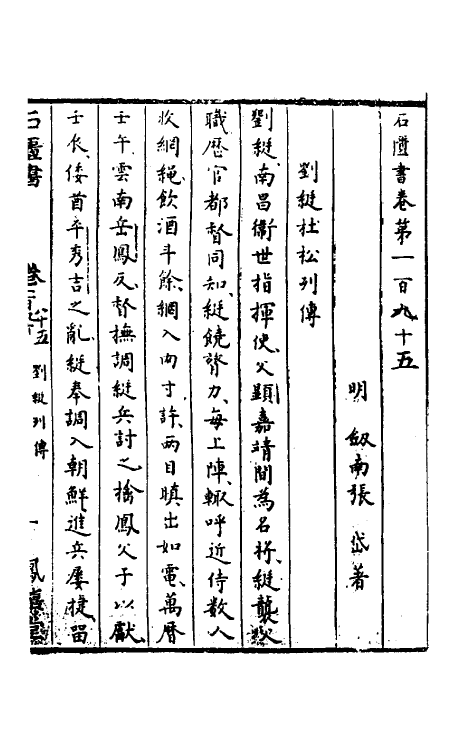 石匱書卷第一百九十五
明 劔南張 岱著
劉綎杜松列傳
劉綎南昌衛世指揮使父顯嘉靖間為名將綎襲父
職歷官都督同知綎饒膂力每上陣輙呼近侍数人
收網繩飲酒斗餘網入肉寸許两目瞋出如電萬曆
壬午雲南岳鳳反督撫調綎兵討之擒鳳父子以獻
壬辰倭酋平秀吉之亂綎奉調入朝鮮進兵屢捷留
石匱書 卷 九十五 劉綎列傳 一 鳳嬉堂